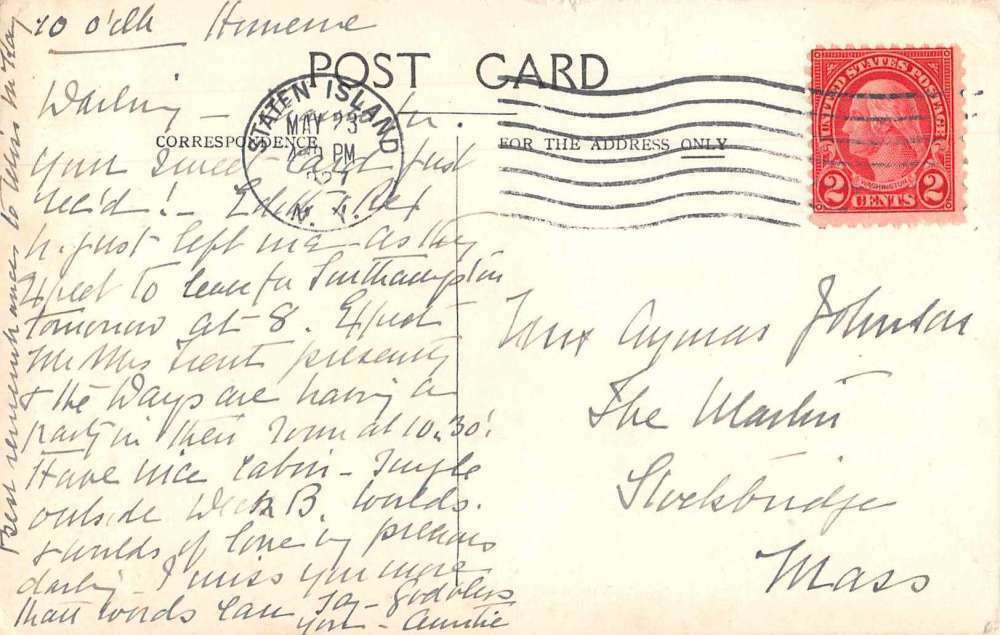 10 o'clk
POST CARD
CORRESPONDENCE
FOR THE ADDRESS ONLY
STATEN ISLAND
MAY 23
PM
N. Y.
UNITED STATES POSTAGE
WASHINGTON
2 CENTS 2
Darling —
your sweet card just
rec'd. — &
just left me — as they
expect to leave for Southampton
tomorrow at 8. Expect
Mr Mrs Trent presently
& the Ways are having a
party in their room at 10.30.
Have nice cabin — single
outside Deck B. worlds
& worlds of love my precious
darling — I miss you more
than words can say — God bless
you — Auntie
Best remembrances to Miss
Aymar Johnson
The
Stockbridge
Mass